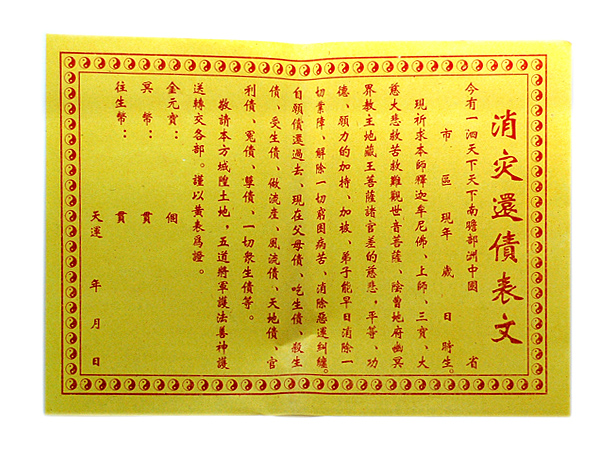 消灾還債表文
今有一泗天下天下南瞻部洲中國 省
市 區 現年 歲 日 時生。
現祈求本師釋迦牟尼佛、上師、三寶、大
慈大悲救苦救難觀世音菩薩、陰曹地府幽冥
界教主地藏王菩薩諸官差的慈悲，平等、功
德、願力的加持、加被、弟子能早日消除一
切業障、解除一切窮困病苦、消除惡運糾纏。
自願債還過去、現在父母債、吃生債、殺生
債、受生債、做流産、風流債、天地債、官
利債、冤債、孽債、一切衆生債等。
敬請本方城隍土地，五道將軍護法善神護
送轉交各部。謹以黃表爲證。
金元寶： 個
冥幣： 貫
往生幣： 貫
天運 年 月 日